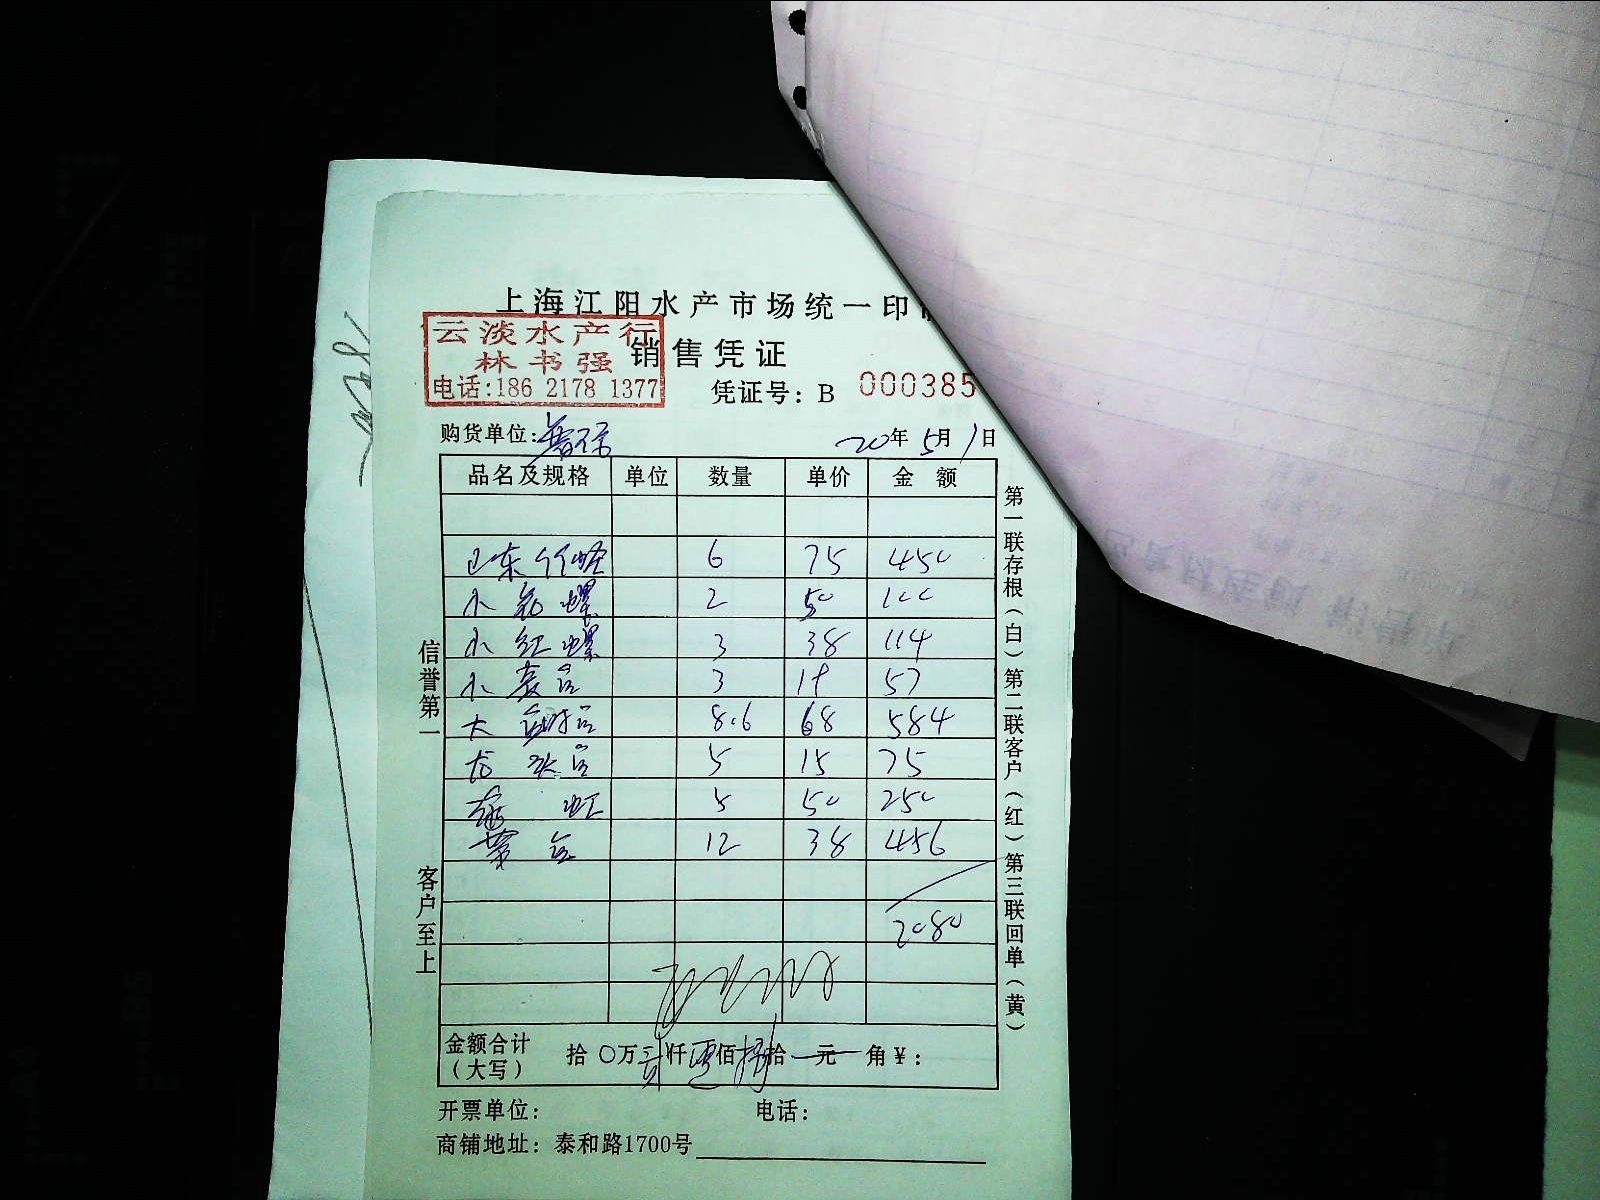 上海江阳水产市场统一印
云淡水产行
林书强
电话:186 2178 1377
销售凭证
凭证号: B 000385
购货单位:
20年5月1日
品名及规格 单位 数量 单价 金额
山东竹蛏 6 75 450
小 螺 2 50 100
小红螺 3 38 114
小 3 19 57
大 8.6 68 584
龙头 5 15 75
虹 5 50 250
12 38 456
2080
金额合计(大写) 拾〇万贰仟零佰捌拾一元 角¥:
开票单位: 电话:
商铺地址: 泰和路1700号
信誉第一 客户至上
第一联存根(白)第二联客户(红)第三联回单(黄)